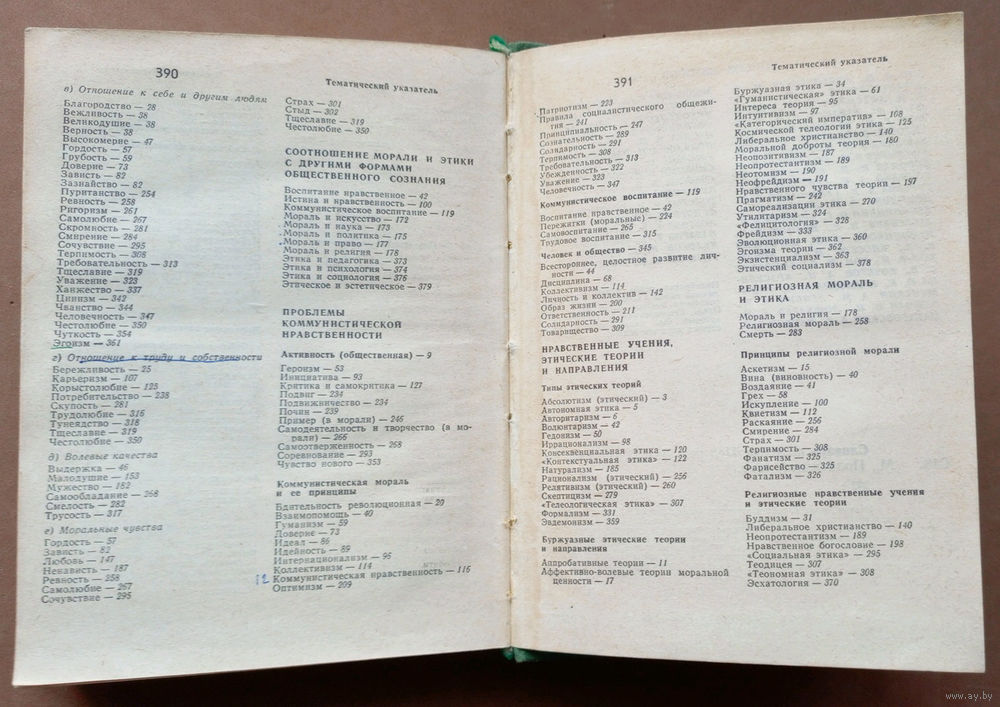 390
Тематический указатель
в) Отношение к себе и другим людям
Благородство — 28
Вежливость — 38
Великодушие — 38
Верность — 38
Высокомерие — 47
Гордость — 57
Грубость — 59
Доверие — 73
Зависть — 82
Зазнайство — 82
Пуританство — 254
Ревность — 258
Ригоризм — 261
Самолюбие — 267
Скромность — 281
Смирение — 284
Сочувствие — 295
Терпимость — 308
Требовательность — 313
Тщеславие — 319
Уважение — 323
Ханжество — 337
Цинизм — 342
Чванство — 344
Человечность — 347
Честолюбие — 350
Чуткость — 354
Эгоизм — 361
г) Отношение к труду и собственности
Бережливость — 25
Карьеризм — 107
Корыстолюбие — 125
Потребительство — 238
Скупость — 281
Трудолюбие — 316
Тунеядство — 318
Тщеславие — 319
Честолюбие — 350
д) Волевые качества
Выдержка — 46
Малодушие — 153
Мужество — 182
Самообладание — 268
Смелость — 282
Трусость — 317
е) Моральные чувства
Гордость — 57
Зависть — 82
Любовь — 147
Ненависть — 187
Ревность — 258
Самолюбие — 267
Сочувствие — 295
Страх — 301
Стыд — 302
Тщеславие — 319
Честолюбие — 350
СООТНОШЕНИЕ МОРАЛИ И ЭТИКИ
С ДРУГИМИ ФОРМАМИ
ОБЩЕСТВЕННОГО СОЗНАНИЯ
Воспитание нравственное — 42
Истина и нравственность — 100
Коммунистическое воспитание — 119
Мораль и искусство — 172
Мораль и наука — 173
Мораль и политика — 175
Мораль и право — 177
Мораль и религия — 178
Этика и педагогика — 373
Этика и психология — 374
Этика и социология — 376
Этическое и эстетическое — 379
ПРОБЛЕМЫ
КОММУНИСТИЧЕСКОЙ
НРАВСТВЕННОСТИ
Активность (общественная) — 9
Героизм — 53
Инициатива — 93
Критика и самокритика — 127
Подвиг — 234
Подвижничество — 234
Почин — 239
Пример (в морали) — 246
Самодеятельность и творчество (в мо-
рали) — 266
Самоотверженность — 268
Соревнование — 293
Чувство нового — 353
Коммунистическая мораль
и ее принципы
Бдительность революционная — 20
Взаимопомощь — 40
Гуманизм — 59
Доверие — 73
Идеал — 86
Идейность — 89
Интернационализм — 95
Коллективизм — 114
12 Коммунистическая нравственность — 116
Оптимизм — 209
391
Тематический указатель
Патриотизм — 223
Правила социалистического общежи-
тия — 241
Принципиальность — 247
Сознательность — 289
Солидарность — 291
Терпимость — 308
Требовательность — 313
Убежденность — 322
Уважение — 323
Человечность — 347
Коммунистическое воспитание — 119
Воспитание нравственное — 42
Пережитки (моральные) — 224
Самовоспитание — 265
Трудовое воспитание — 315
Человек и общество — 345
Всестороннее, целостное развитие лич-
ности — 44
Дисциплина — 68
Коллективизм — 114
Личность и коллектив — 142
Образ жизни — 200
Ответственность — 211
Солидарность — 291
Товарищество — 309
НРАВСТВЕННЫЕ УЧЕНИЯ,
ЭТИЧЕСКИЕ ТЕОРИИ
И НАПРАВЛЕНИЯ
Типы этических теорий
Абсолютизм (этический) — 3
Автономная этика — 5
Авторитаризм — 6
Волюнтаризм — 42
Гедонизм — 50
Иррационализм — 98
Консеквенциальная этика — 120
«Контекстуальная этика» — 122
Натурализм — 185
Рационализм (этический) — 256
Релятивизм (этический) — 260
Скептицизм — 279
«Телеологическая этика» — 307
Формализм — 331
Эвдемонизм — 359
Буржуазные этические теории
и направления
Аппробативные теории — 11
Аффективно-волевые теории моральной
ценности — 17
Буржуазная этика — 34
«Гуманистическая» этика — 61
Интереса теория — 95
Интуитивизм — 97
«Категорический императив» — 108
Космической телеологии этика — 125
Либеральное христианство — 140
Моральной доброты теория — 180
Неопозитивизм — 187
Неопротестантизм — 189
Неотомизм — 190
Неофрейдизм — 191
Нравственного чувства теории — 197
Прагматизм — 242
Самореализации этика — 270
Утилитаризм — 324
«Фелицитология» — 328
Фрейдизм — 333
Эволюционная этика — 360
Эгоизма теории — 362
Экзистенциализм — 363
Этический социализм — 378
РЕЛИГИОЗНАЯ МОРАЛЬ
И ЭТИКА
Мораль и религия — 178
Религиозная мораль — 258
Смерть — 283
Принципы религиозной морали
Аскетизм — 15
Вина (виновность) — 40
Воздаяние — 41
Грех — 58
Искупление — 100
Квиетизм — 112
Раскаяние — 256
Смирение — 284
Страх — 301
Терпимость — 308
Фанатизм — 325
Фарисейство — 325
Фатализм — 326
Религиозные нравственные учения
и этические теории
Буддизм — 31
Либеральное христианство — 140
Неопротестантизм — 189
Нравственное богословие — 198
«Социальная этика» — 295
Теодицея — 307
«Теономная этика» — 308
Эсхатология — 370
www.ay.by